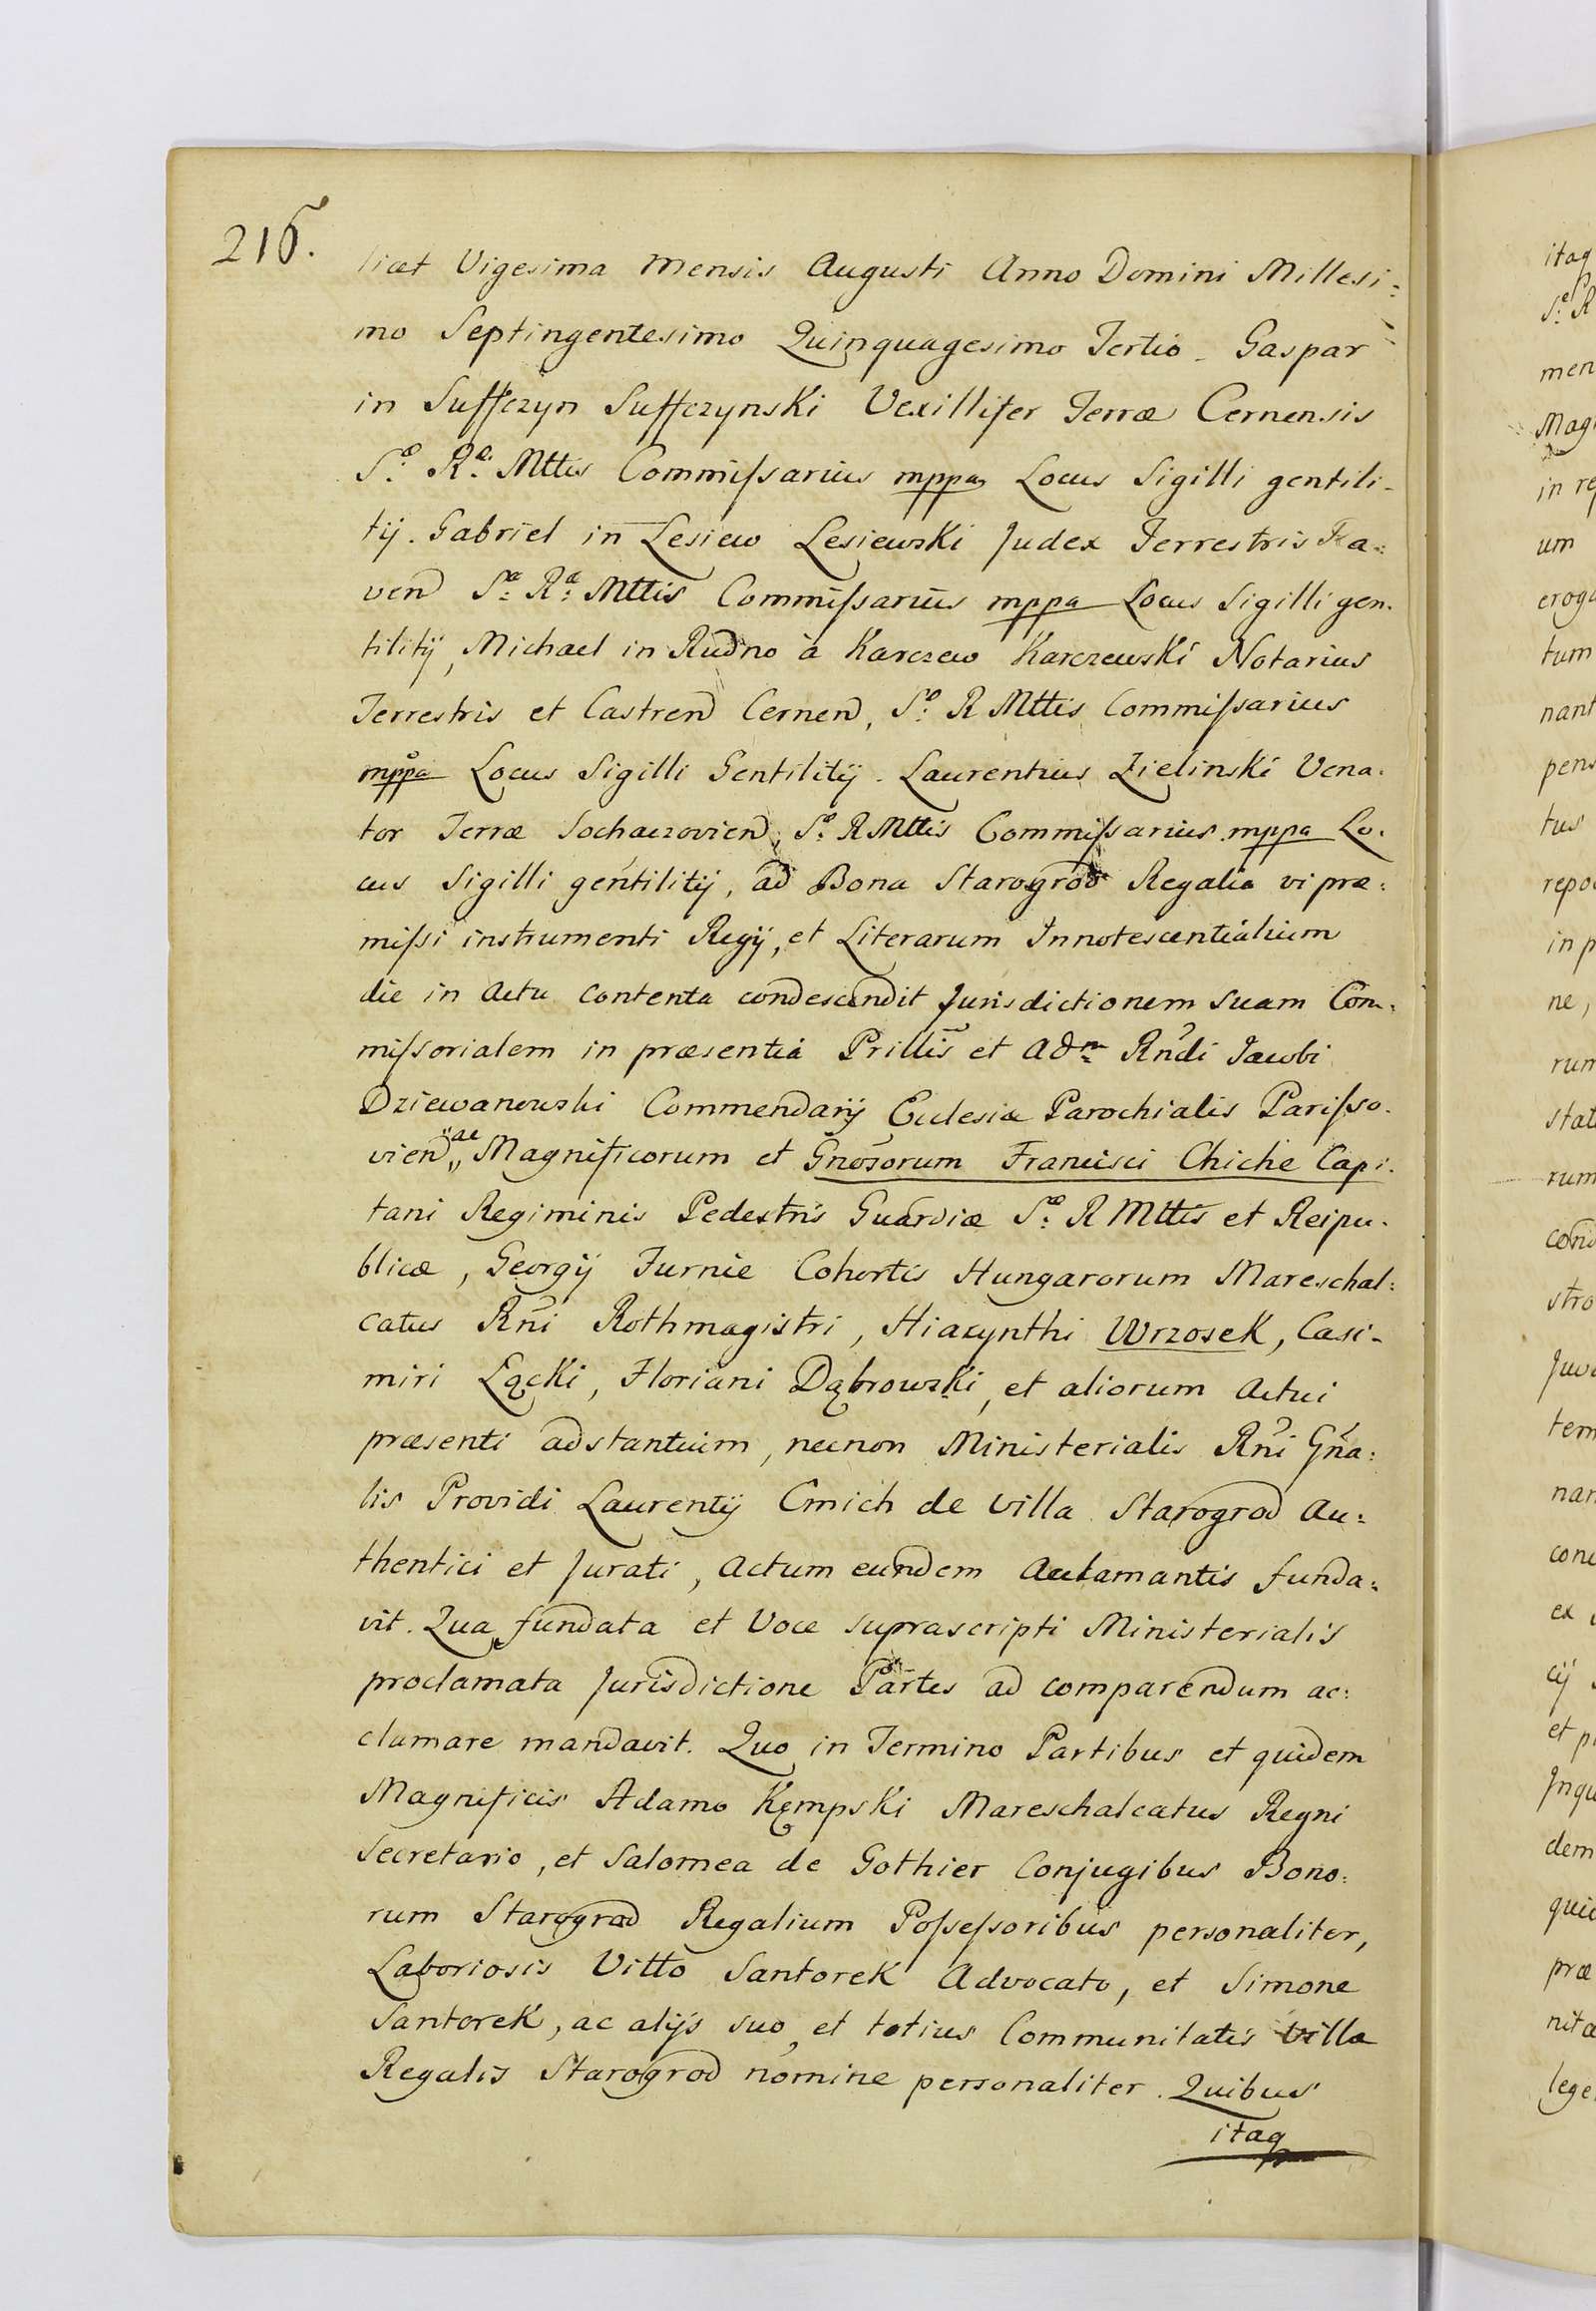 216.
liæt Vigesima Mensis Augusti Anno Domini Millesi=
mo Septingentesimo Quinquagesimo Tertio. Gaspar
in Suffczyn Suffczynski Vexillifer Terræ Cernensis
Sæ: Ræ: Mttis Commissarius mppa Locus Sigilli gentili-
tij. Gabriel in Lesiew Lesiewski Judex Terrestris Ra=
ven Sæ: Ræ: Mttis Commissarius mppa Locus Sigilli gen.
tilitij, Michael in Rudno à Karczew Karczewski Notarius
Terrestris et Castren Cernen, Sæ: R Mttis Commissarius
mppa Locus Sigilli Gentilitij. Laurentius Zielinski Vena.
tor Terræ Sochaczovien, Sæ: R Mttis Commissarius mppa Lo.
cus Sigilli gentilitij, ad Bona Starogrod Regalia vi præ:
missi instrumenti Regij, et Literarum Innotescentialium
die in Actu contenta condescendit Jurisdictionem suam Com=
missorialem in præsentia Prillis et Adm Rndi Jacobi
Dziewanowski Commendarij Eclesiæ Parochialis Parisso.
vien„ ac Magnificorum et Gnosorum Francisci Chiche Capi.
tani Regiminis Pedestris Guardiæ Sæ: R Mttis et Reipu.
blicæ, Georgij Furnie Cohortis Hungarorum Mareschal=
catus Rni Rothmagistri, Hiacynthi Wrzosek, Casi-
miri Łącki, Floriani Dąbrowski, et aliorum Actui
præsenti adstantium, necnon Ministerialis Rni Gna=
lis Providi Laurentij Cmich de villa Starogrod Au=
thentici et Jurati, Actum eundem Aclamantis funda=
vit. Qua fundata et Voce suprascripti Ministerialis
proclamata Jurisdictione Partes ad comparendum ac=
clamare mandavit. Quo in Termino Partibus et quidem
Magnificis Adamo Kęmpski Mareschalcatus Regni
Secretario, et Salomea de Gothier Conjugibus Bono=
rum Starogrod Regalium Possessoribus personaliter,
Laboriosis Vitto Santorek Advocato, et Simone
Santorek, ac alijs suo, et totius Communitatis Villa
Regalis Starogrod nomine personaliter. Quibus
itaq
itaq
Sæ: R
men
Mag
in re
um
eroga
tum
nant
pens
tus
repo
in p
ne,
rum
stat
rum
cond
stro
Juv
tem
nar
conc
ex
cij
et p
Inqu
dem
quic
præ
nita
lege